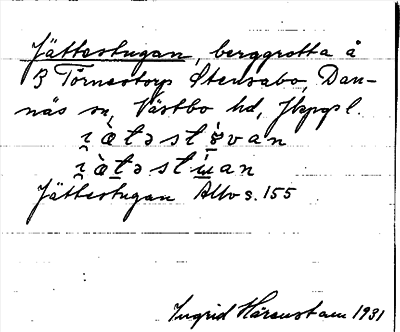 Jättestugan, berggrotta å
B Törnestorp Stensabo, Dan-
näs sn, Västbo hd, Jkpgs l.
i̯ὰt̲əstú̲van
i̯ὰt̲əstú̲an
Jättestugan Allv s. 155
Ingrid Härenstam 1931